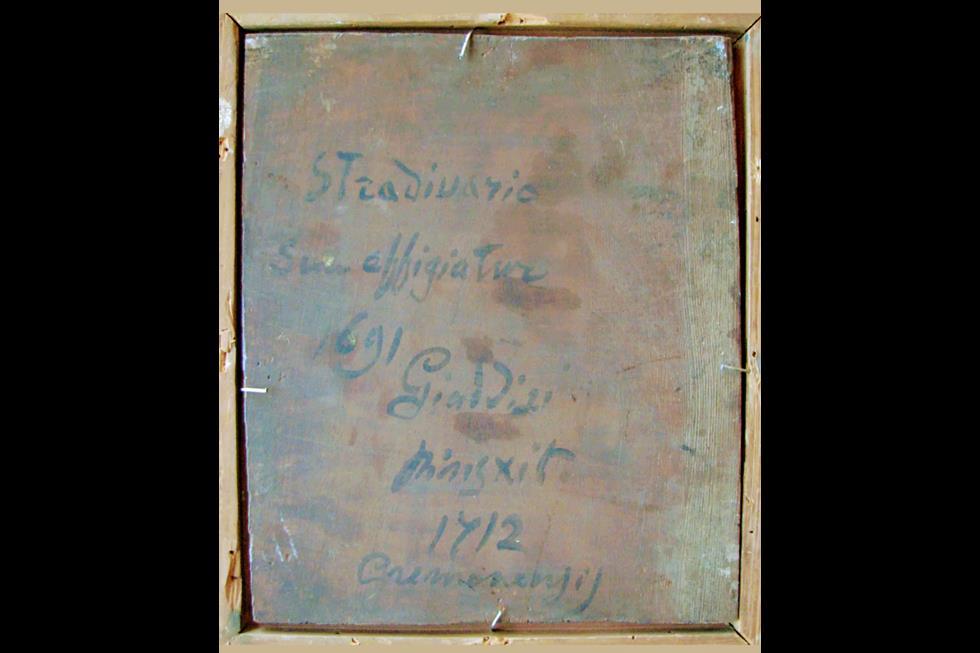 Stradivario
Sua effigiatur
1691
Gialdisi
pingxit
1712
Cremonensis